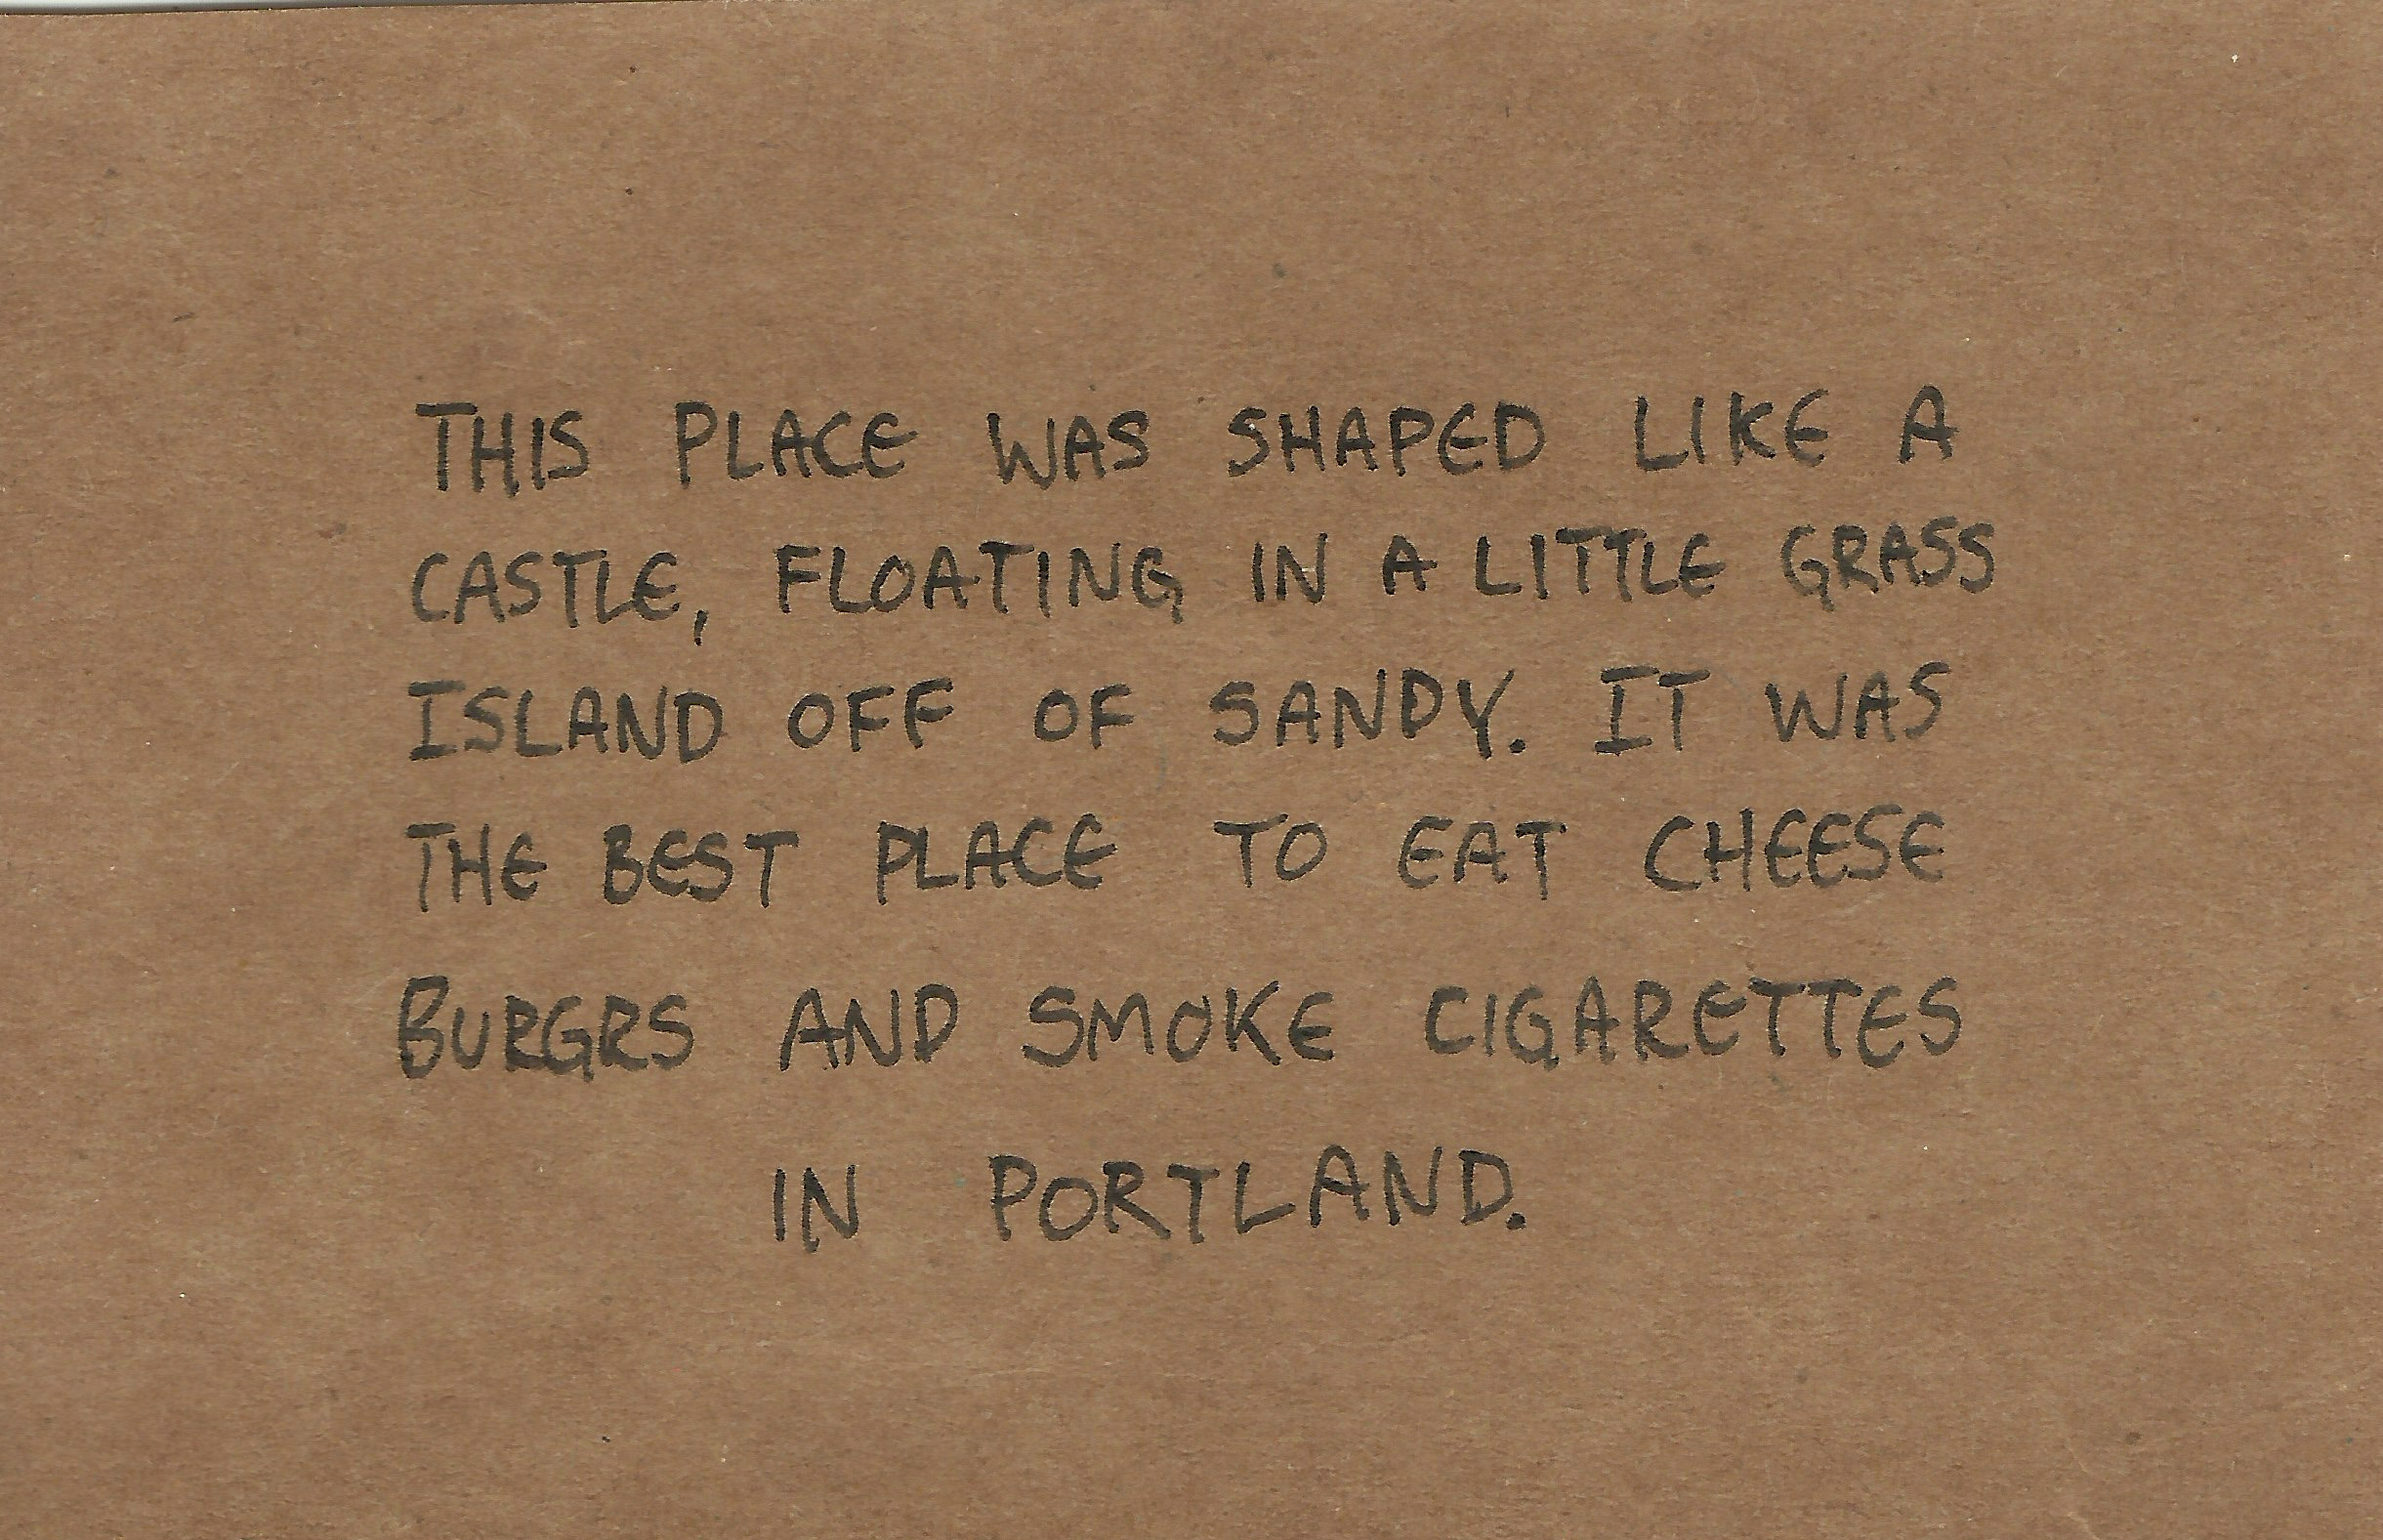 THIS PLACE WAS SHAPED LIKE A
CASTLE, FLOATING IN A LITTLE GRASS
ISLAND OFF OF SANDY. IT WAS
THE BEST PLACE TO EAT CHEESE
BURGRS AND SMOKE CIGARETTES
IN PORTLAND.